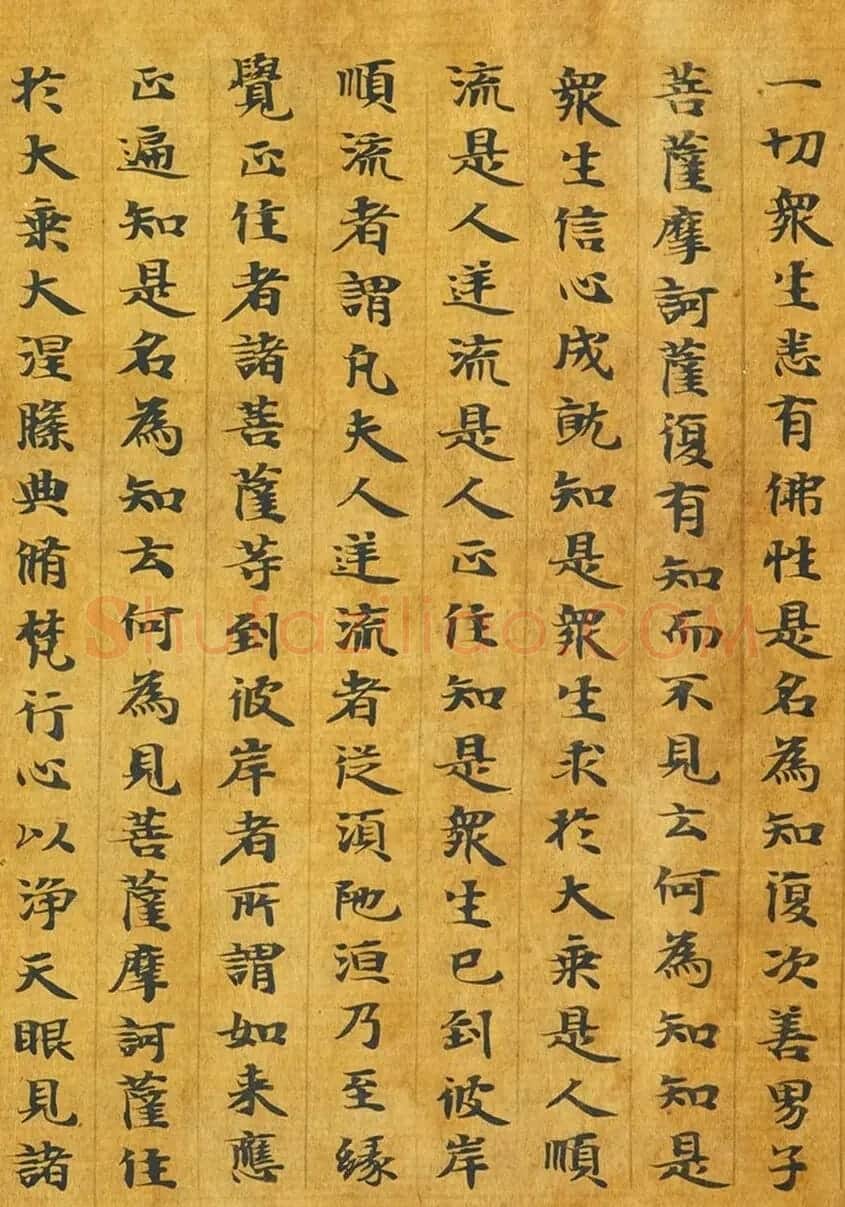 一切衆生悉有佛性是名為知復次善男子
菩薩摩訶薩復有知而不見云何為知知是
衆生信心成就知是衆生求於大乘是人順
流是人逆流是人正住知是衆生已到彼岸
順流者謂凡夫人逆流者從須陁洹乃至緣
覺正住者諸菩薩等到彼岸者所謂如来應
正遍知是名為知云何為見菩薩摩訶薩住
於大乘大涅槃典脩梵行心以净天眼見諸
Shufaziliao.COM